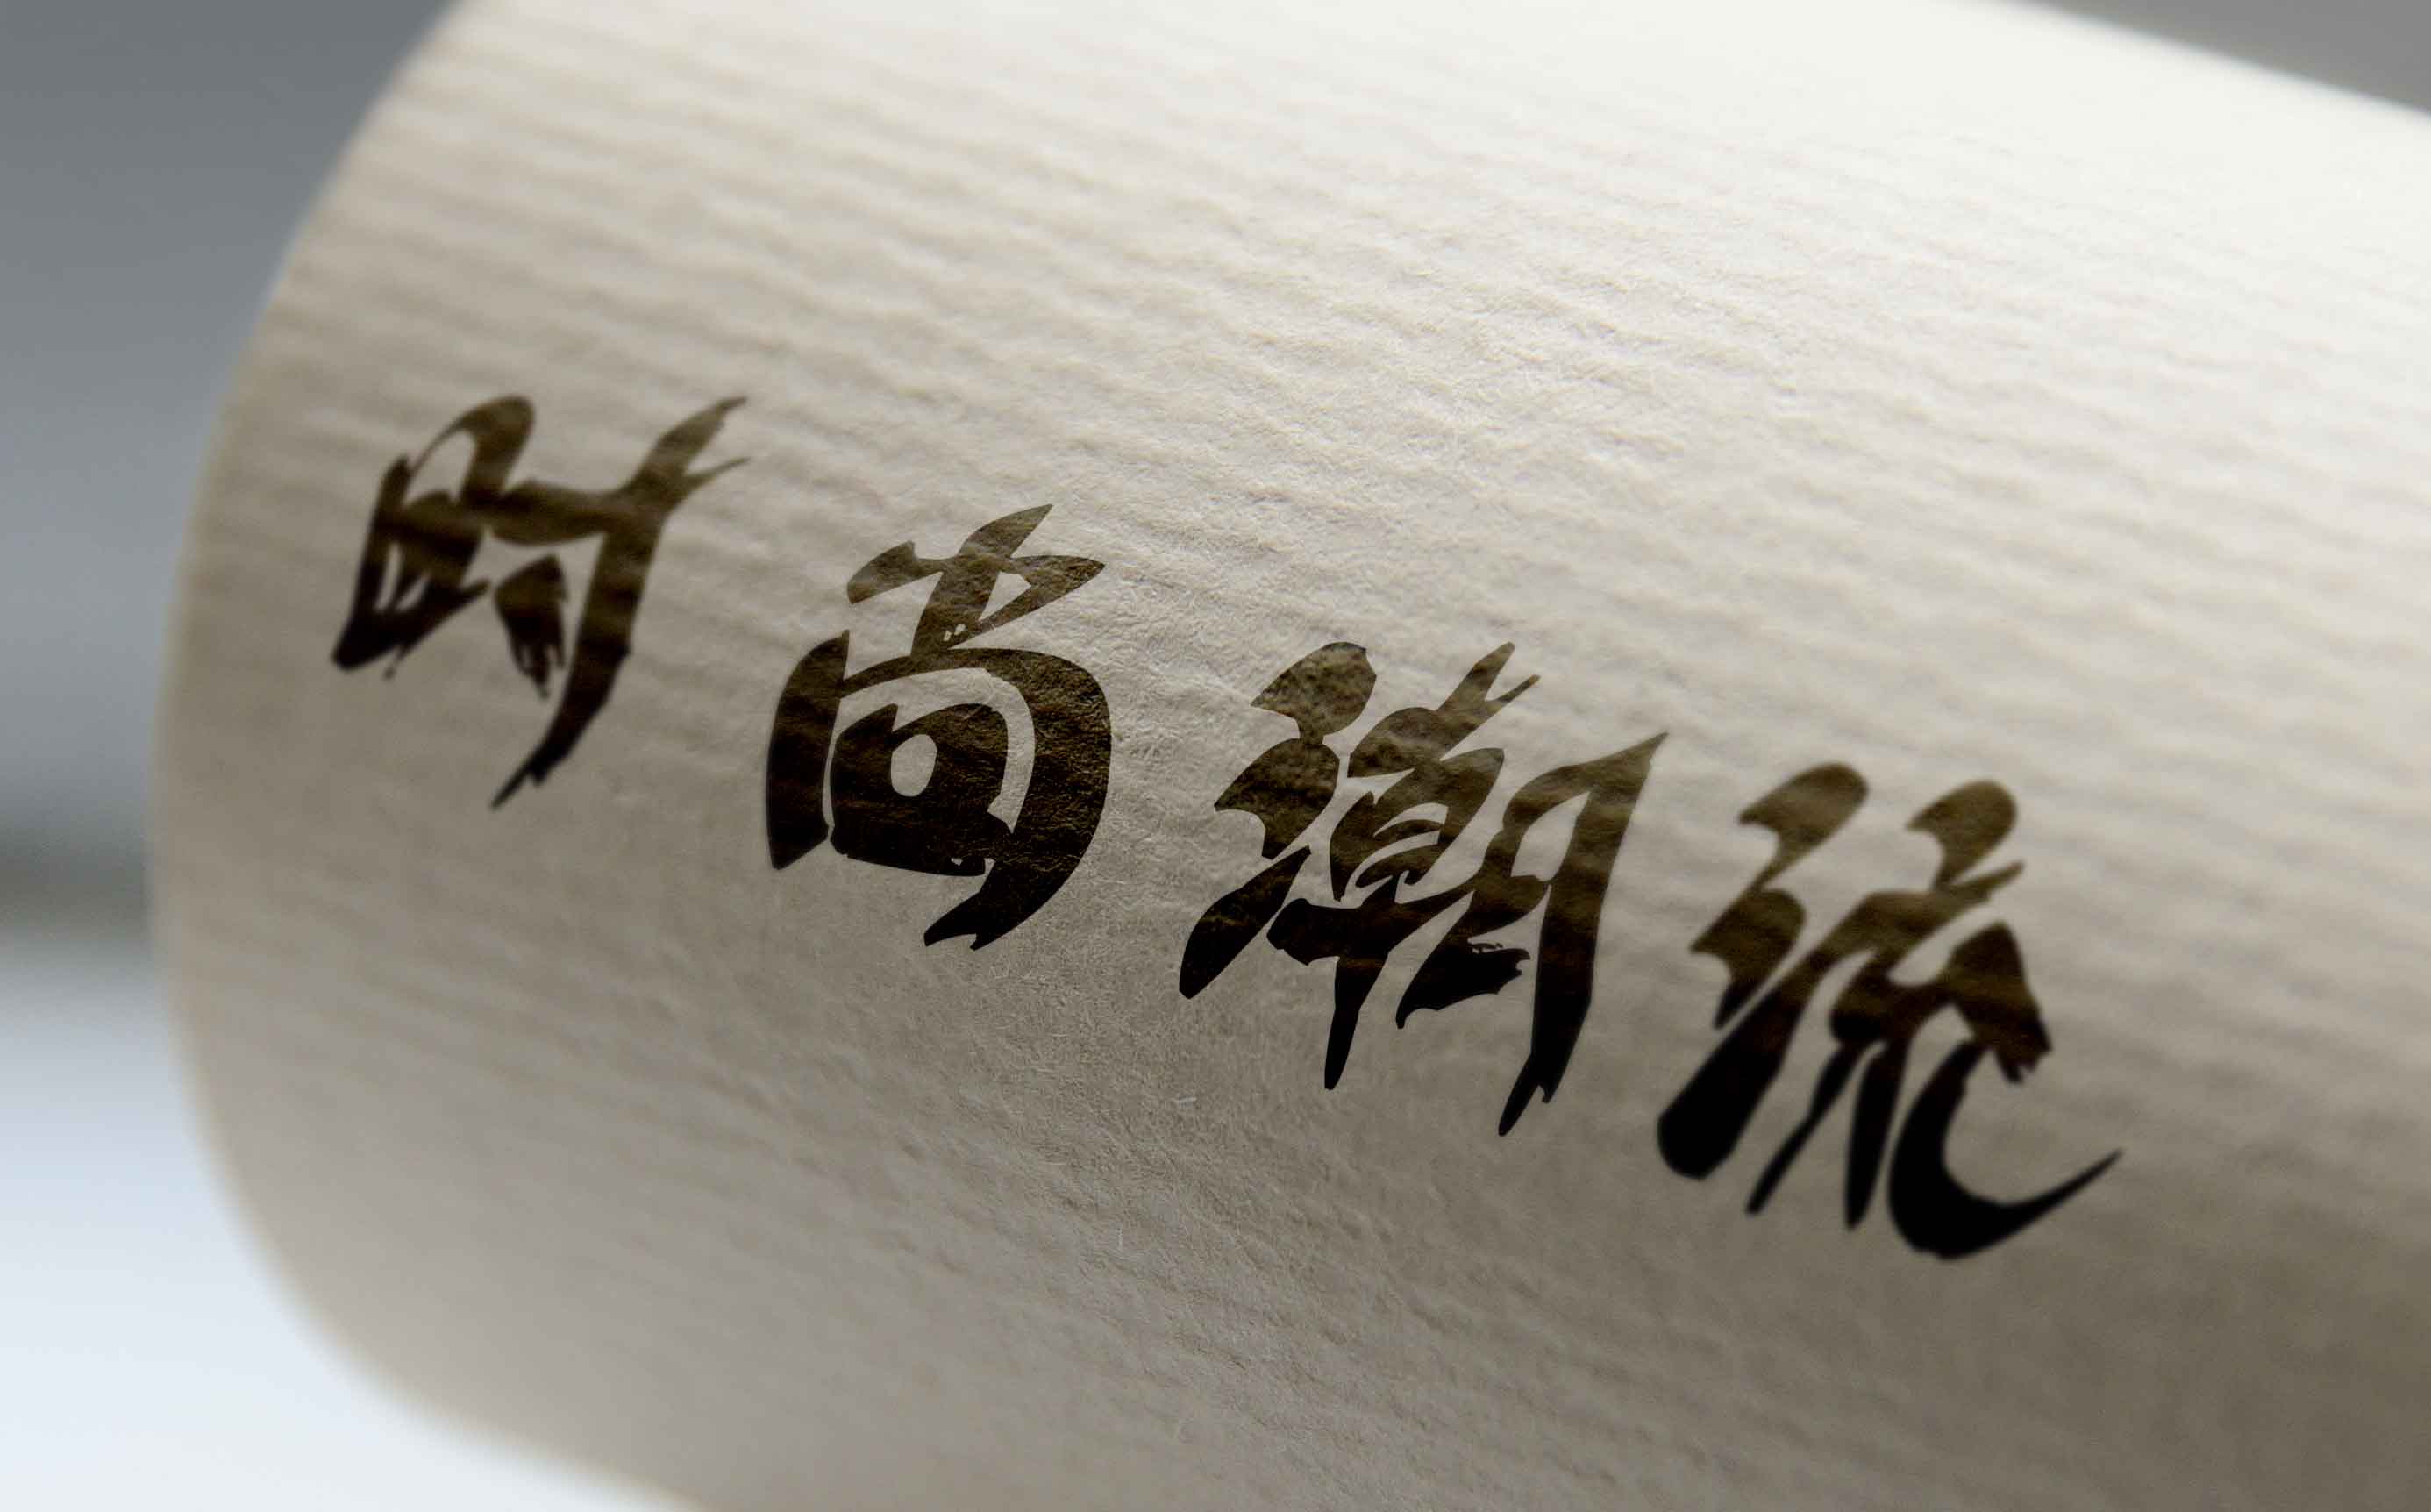 时尚潮流